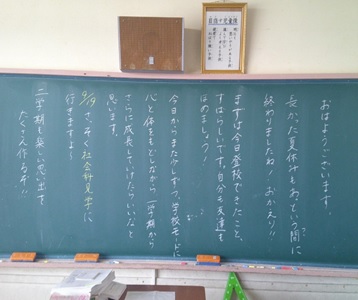 目指す児童像
おはようございます。
長かった夏休みもあっという間に
終わりましたね！おかえり!!
まずは今日登校できたこと、
すばらしいです。自分も友達も
ほめましょう！
今日からまた少しずつ、学校モードに
心と体をもどしながら一学期から
さらに成長していけたらいいなと
思います。
9/19 さっそく社会科見学に
行きますよ～
二学期も楽しい思い出を
たくさん作るぞ!!